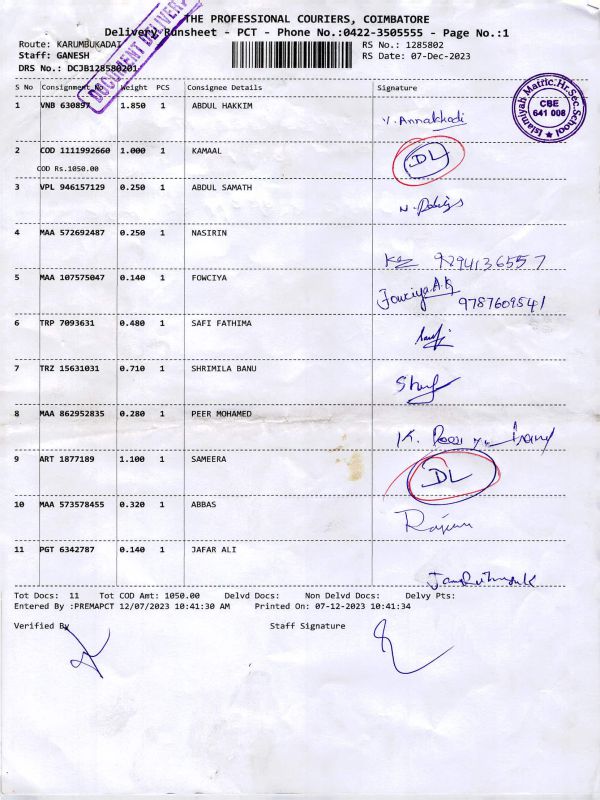 THE PROFESSIONAL COURIERS, COIMBATORE
Delivery Runsheet - PCT - Phone No.:0422-3505555 - Page No.:1
DOCUMENT DELIVERY
Route: KARUMBUKADAI
RS No.: 1285802
Staff: GANESH
RS Date: 07-Dec-2023
DRS No.: DCJB128580201
S No Consignment No Weight PCS Consignee Details Signature
1 VNB 630897 1.850 1 ABDUL HAKKIM
Islamiyah Matric.Hr.Sec.School
CBE
641 008
2 COD 1111992660 1.000 1 KAMAAL DL
COD Rs.1050.00
3 VPL 946157129 0.250 1 ABDUL SAMATH
4 MAA 572692487 0.250 1 NASIRIN
9894136557
5 MAA 107575047 0.140 1 FOWCIYA
Fowciya.A.K 9787609541
6 TRP 7093631 0.480 1 SAFI FATHIMA
7 TRZ 15631031 0.710 1 SHRIMILA BANU
8 MAA 862952835 0.280 1 PEER MOHAMED
9 ART 1877189 1.100 1 SAMEERA DL
10 MAA 573578455 0.320 1 ABBAS
11 PGT 6342787 0.140 1 JAFAR ALI
Tot Docs: 11 Tot COD Amt: 1050.00 Delvd Docs: Non Delvd Docs: Delvy Pts:
Entered By :PREMAPCT 12/07/2023 10:41:30 AM Printed On: 07-12-2023 10:41:34
Verified By Staff Signature